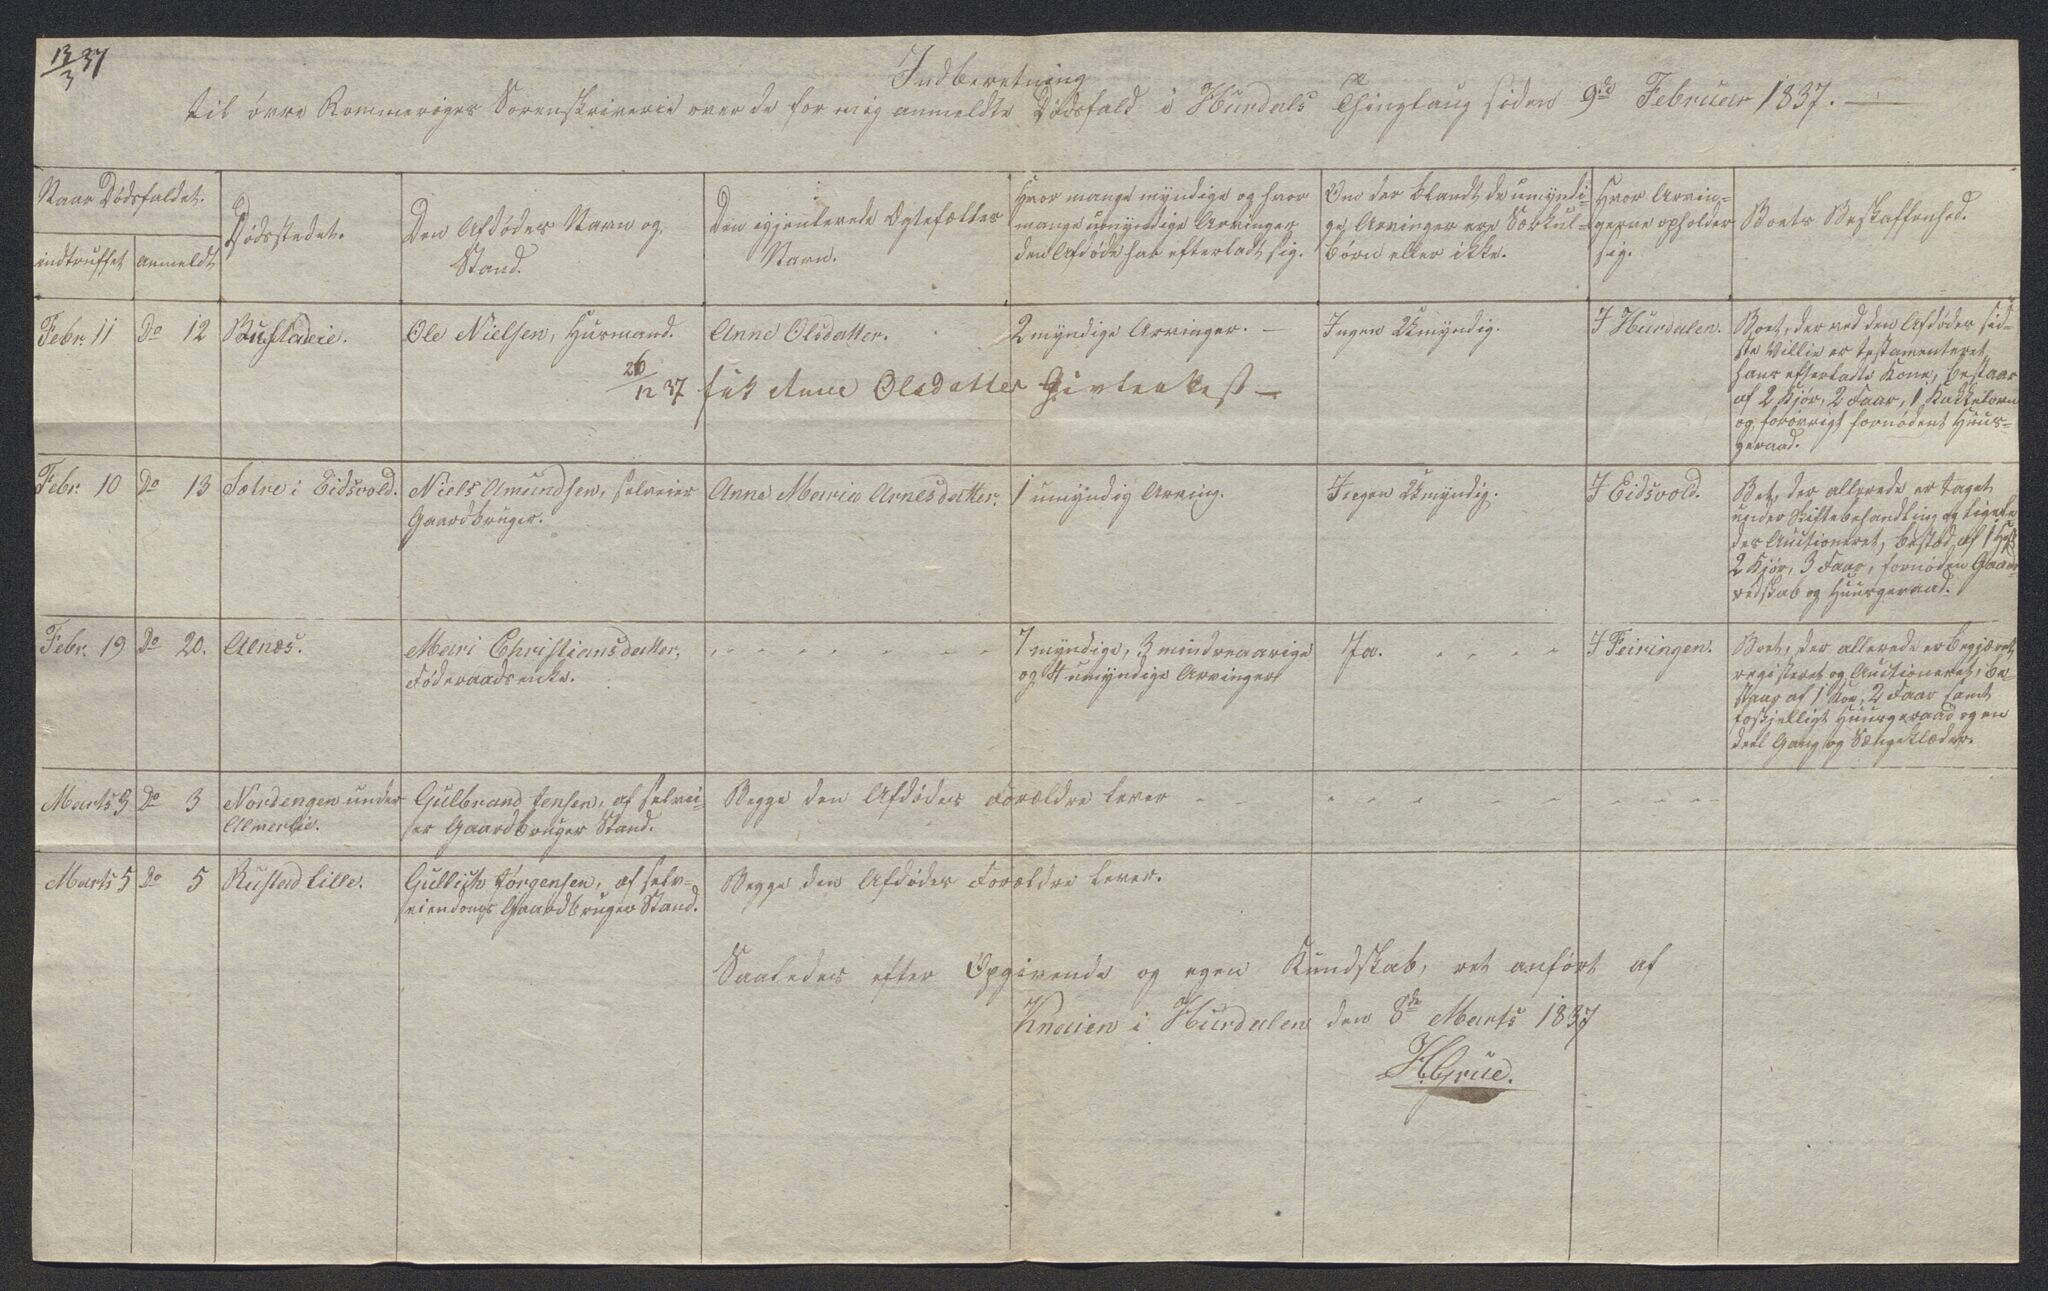 13/3 37
Indberetning
til øvre Rommeriges Sorenskriverie over de for mig anmeldte Dødsfald i Hurdals Thinglaug siden 9de Februar 1837.
Naar Dødsfaldet.
indtruffet
anmeldt
Dødsstedet.
Den Afdødes Navn og
Stand.
Den igjenlevende Ægtefælles
Navn.
Hvor mange myndige og hvor
mange umyndige Arvinger
den Afdøde har efterladt sig.
Om der blandt de umyndi-
ge Arvinger ere Særkul-
børn eller ikke.
Hvor Arvin-
gerne opholder
sig.
Boets Beskaffenhed.
Febr. 11
Do 12
Rustadeie.
Ole Nielsen, Husmand.
Anne Olsdatter.
2 myndige Arvinger. —
Ingen Umyndig.
I Hurdalen.
Boet, der ved den Afdødes sid-
ste Villie er testamenteret
hans efterladte Kone, bestaar
af 2 Kjør, 2 Faar, 1 Kakkelovn
og forøvrigt fornødent Huus-
geraad.
26/12 37 fik Anne Olsdatter Skifteattest —
Febr. 10
Do 13
Sætre i Eidsvold.
Niels Amundsen, selveier
Gaardbruger.
Anne Maria Arnesdatter.
1 umyndig Arving.
Ingen Umyndig.
I Eidsvold.
Boet, der allerede er taget
under Skiftebehandling og ligele
des Auctioneret, bestod af 1 Hest
2 Kjør, 3 Faar, fornøden Gaards
redskab og Huusgeraad.
Febr. 19
Do 20.
Alnæs.
Mari Christiansdatter,
Føderaadsenke.
7 myndige, 3 mindreaarige
og 4 umyndige Arvinger
Ja.
I Feiringen.
Boet, der allerede er begjæret
registeret og Auctioneret, be-
staar af 1 Koe, 2 Faar samt
foskjelligt Huusgeraad og en
deel Gang og Sængeklæder.
Marts 3
Do 3
Nordengen under
Almerlie.
Gulbrand Jensen, af selvei-
er Gaardbruger Stand.
Begge den Afdødes Forældre lever
Marts 5
Do 5
Rustad lille.
Gullich Jørgensen, af selv-
eiendoms Gaardbruger Stand.
Begge den Afdødes Forældre lever.
Saaledes efter Opgivende og egen Kundskab, ret anført af
Knaien i Hurdalen den 8de Marts 1837
H. Grue.